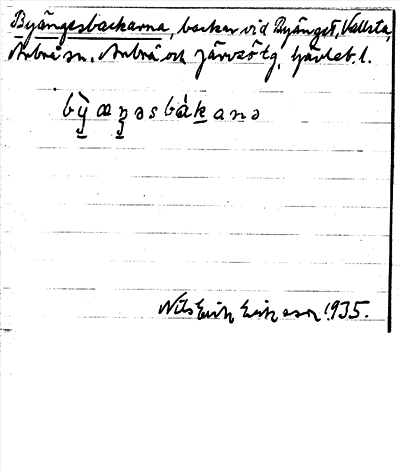 Byängesbackarna, backar vid Byänget, Vallsta,
Arbrå sn. Arbrå och Järvsö tg, Gävleb. l.
bỳæŋəsbákanə
Nils Erik Eriksson 1935.